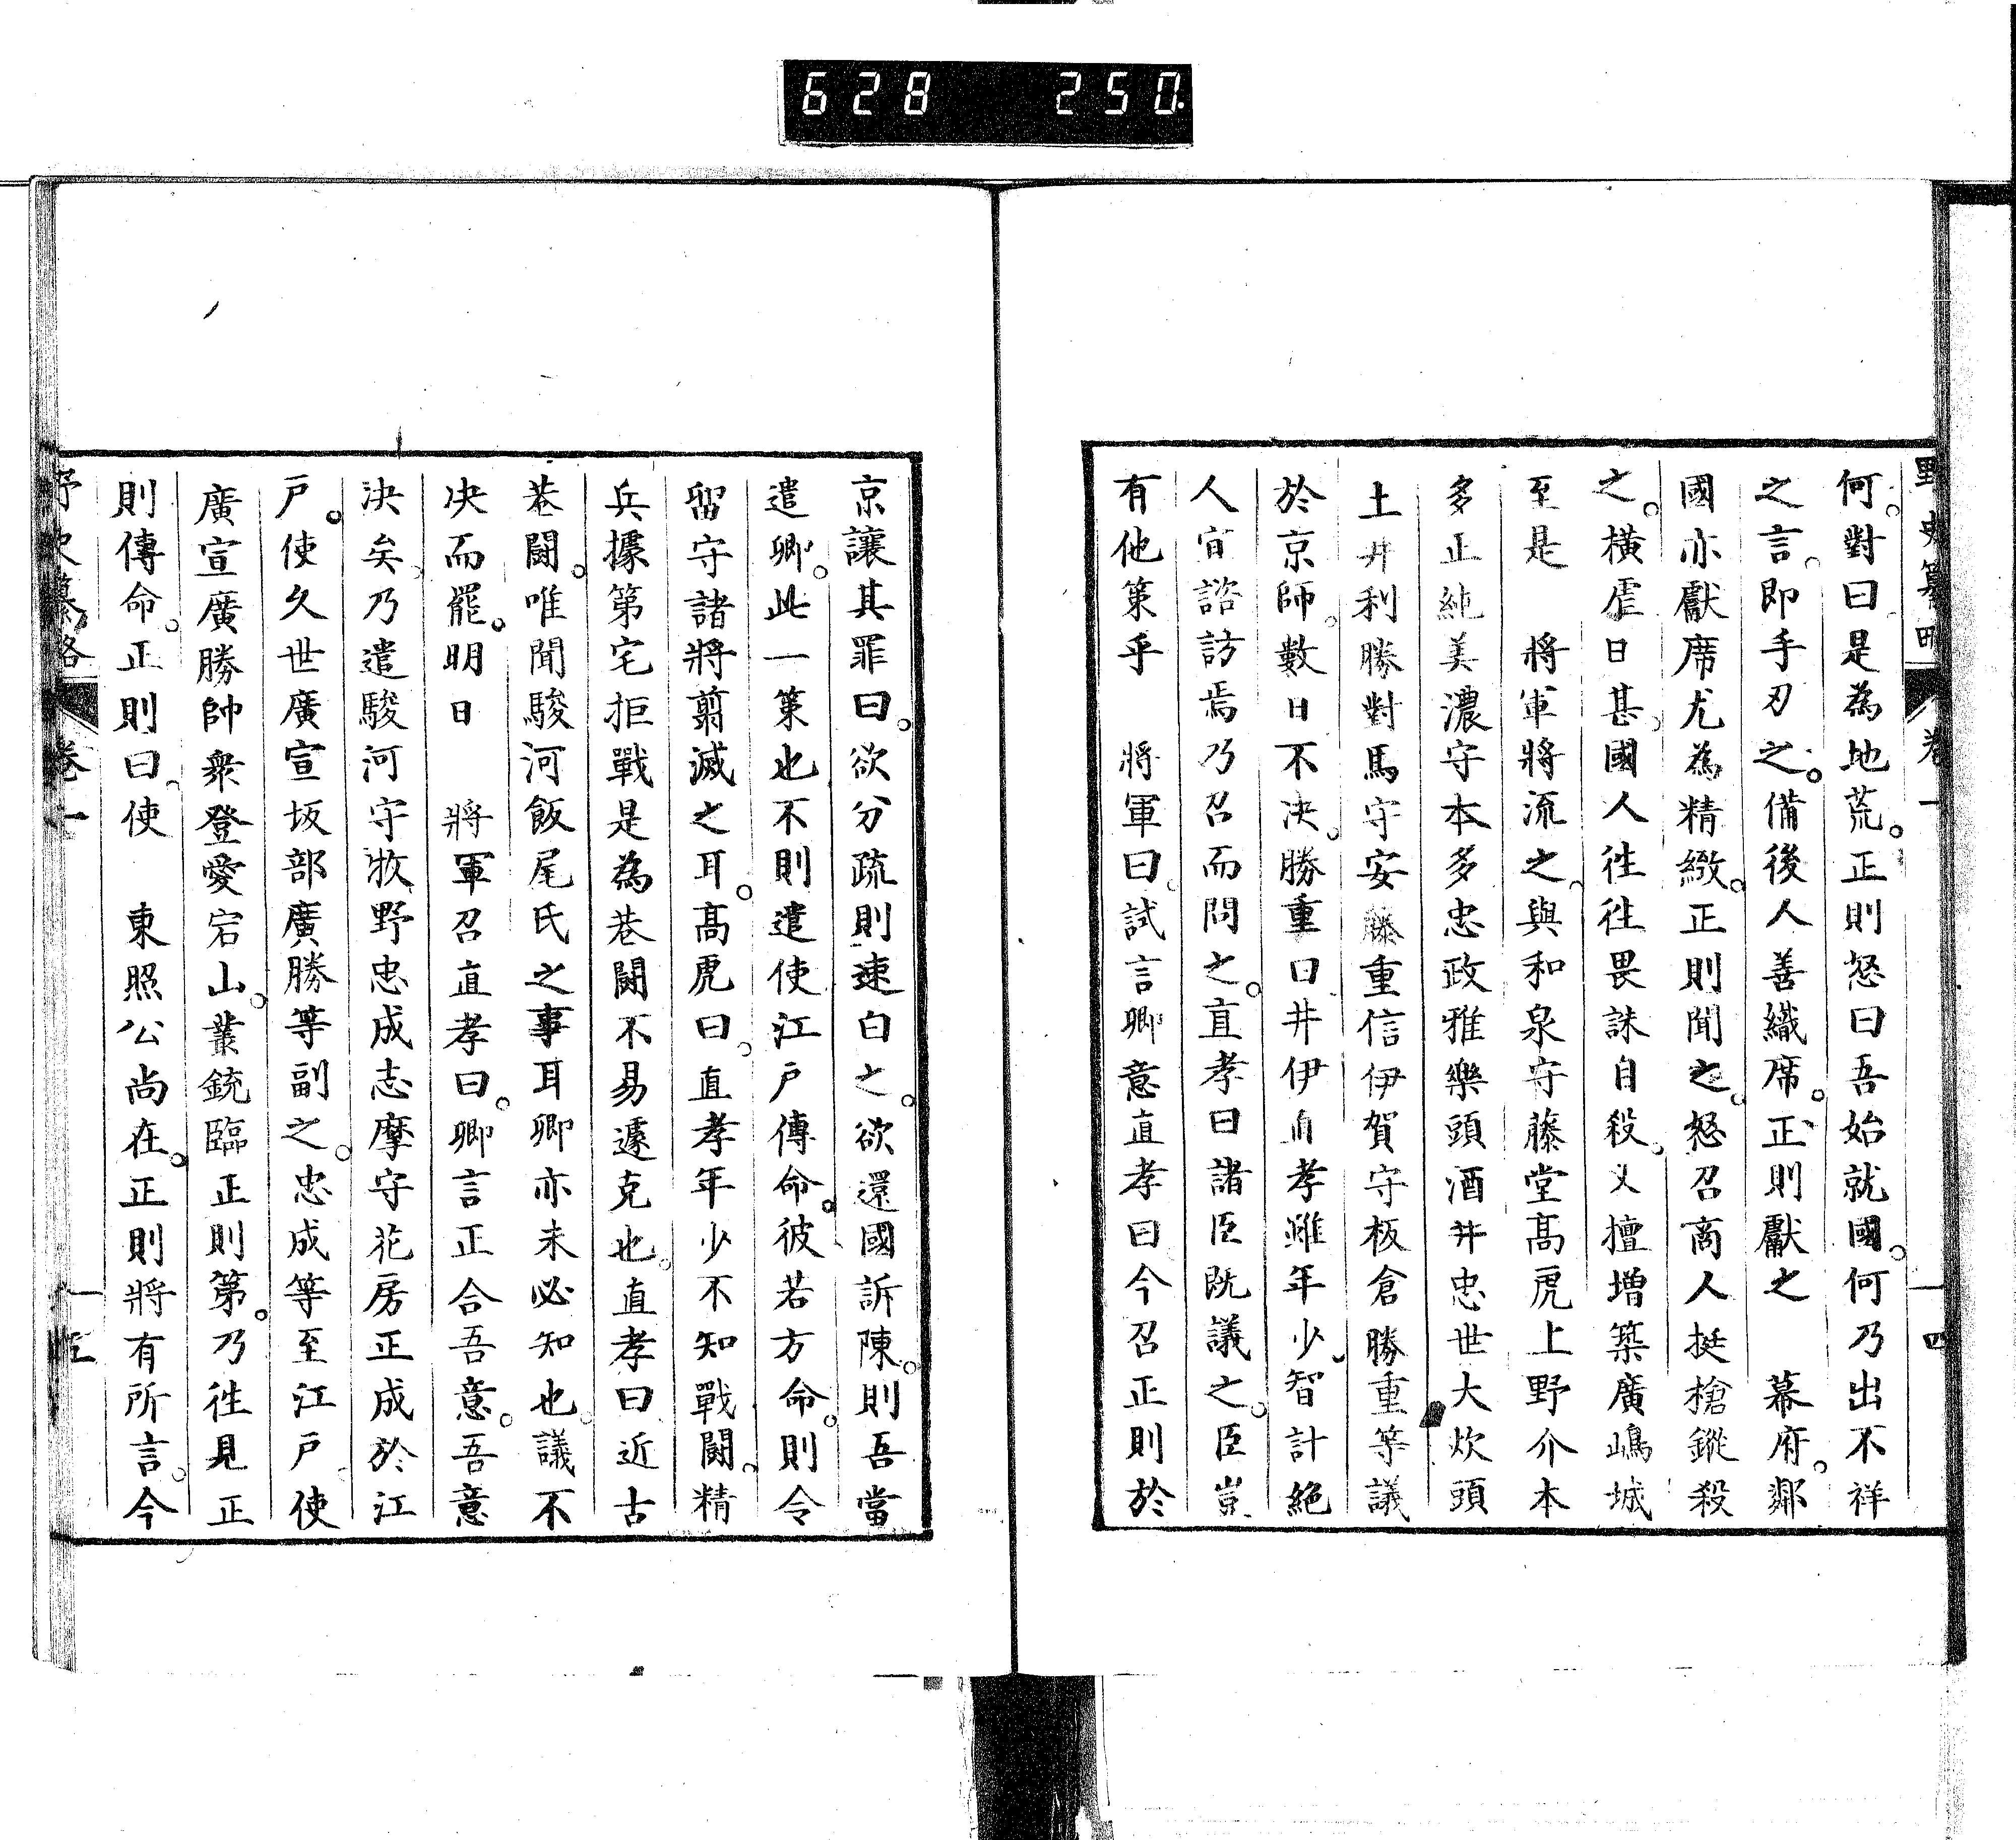 628 250.
野史纂略 卷一 一四
何。對曰是為地荒。正則怒曰吾始就國。何乃出不祥
之言。即手刃之。備後人善織席。正則獻之 幕府。鄰
國亦獻席尤為精緻。正則聞之。怒召商人挺槍鏦殺
之。橫虐日甚。國人徃徃畏誅自殺。又擅增築廣嶋城
至是 將軍將流之。與和泉守藤堂高虎上野介本
多正純美濃守本多忠政雅樂頭酒井忠世大炊頭
土井利勝對馬守安藤重信伊賀守板倉勝重等議
於京師。數日不決。勝重曰井伊直孝雖年少。智計絕
人宜諮訪焉乃召而問之。直孝曰諸臣既議之。臣豈
有他策乎 將軍曰。試言卿意直孝曰今召正則於
京讓其罪曰。欲分疏則速白之。欲還國訴陳。則吾當
遣卿。此一策也不則遣使江戶傳命。彼若方命。則令
留守諸將翦滅之耳。高虎曰。直孝年少不知戰鬪。精
兵據第宅拒戰是為巷鬪不易遽克也。直孝曰近古
巷鬪。唯聞駿河飯尾氏之事耳卿亦未必知也。議不
决而罷。明日 將軍召直孝曰。卿言正合吾意。吾意
決矣。乃遣駿河守牧野忠成志摩守花房正成於江
戶。使久世廣宣坂部廣勝等副之。忠成等至江戶。使
廣宣廣勝帥衆登愛宕山。叢銃臨正則第。乃徃見正
則傳命。正則曰。使 東照公尚在。正則將有所言。今
野史纂略 卷一 一五